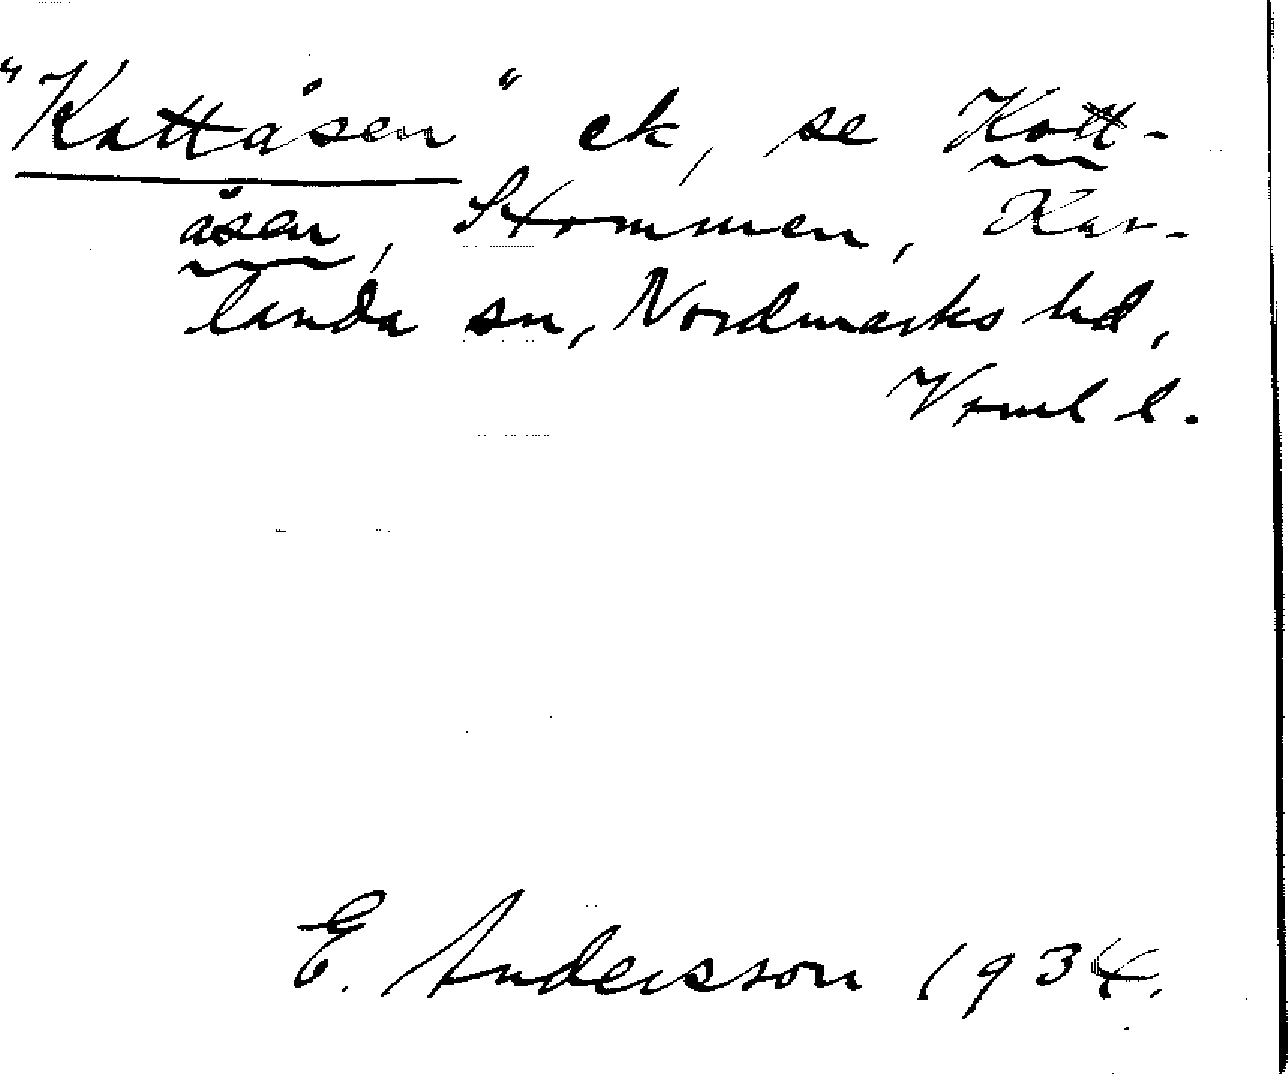 "Kattåsen" ek, se Kott-
åsen, Strommen, Kar-
landa sn, Nordmarks hd,
Vrml l.
E. Andersson 1934.